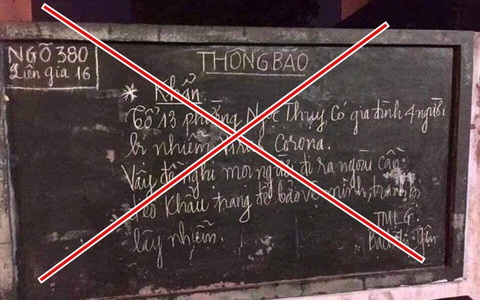 NGÕ 380
Liên gia 16
THÔNG BÁO
* Khẩn
Tổ 13 phường Ngọc Thụy có gia đình 4 người
bị nhiễm Virus Corona.
Vậy đề nghị mọi người đi ra ngoài cần
đeo Khẩu trang để bảo vệ mình, tránh bị
lây nhiễm.
TMLG